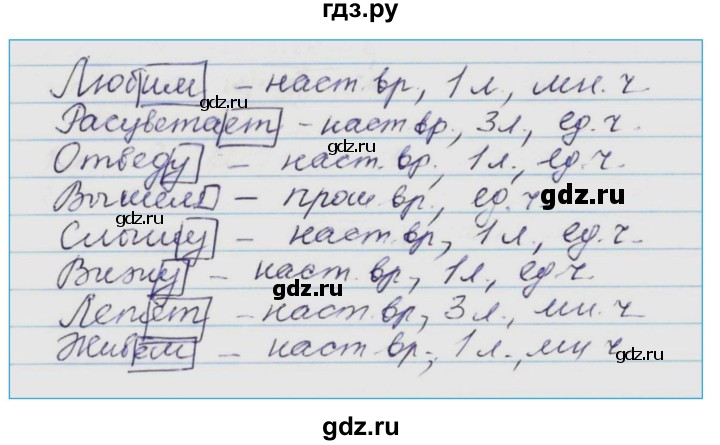 гдз.ру
Любим – наст. вр., 1 л., мн. ч.
gdz.ru
Расцветает – наст. вр., 3 л., ед. ч.
gdz.ru
Отведу – наст. вр., 1 л., ед. ч.
Вышел – прош. вр., ед. ч. gdz.ru
gdz.ru
Слышу – наст. вр., 1 л., ед. ч.
Вижу – наст. вр., 1 л., ед. ч.
gdz.ru
Лепет – наст. вр., 3 л., мн. ч.
gdz.ru
Живем – наст. вр., 1 л., мн ч.
gdz.ru